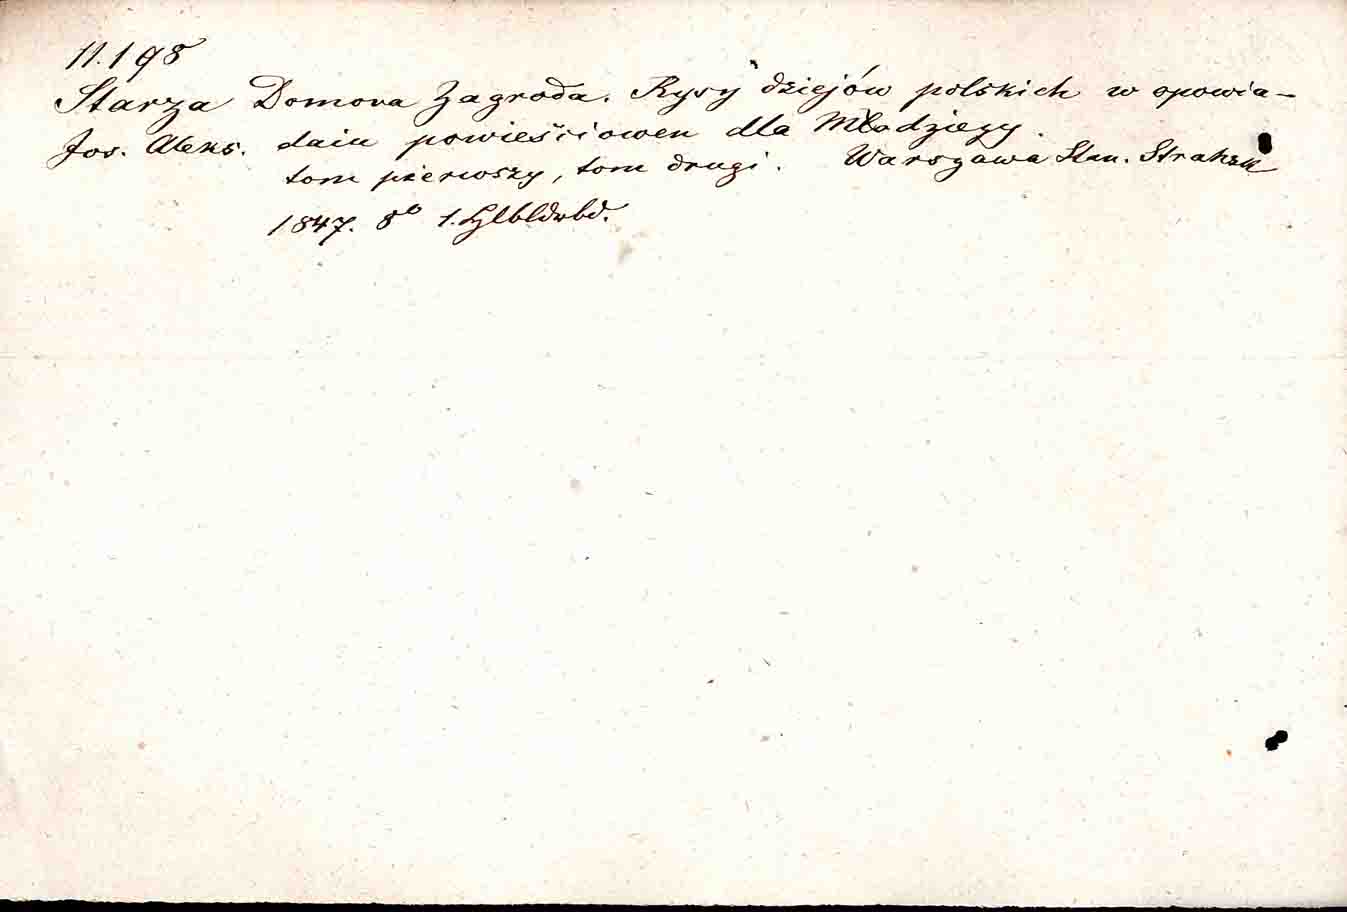 11.198
Starza Domova Zagroda. Rysy dziejów polskich w opowia-
Jos. Aleks. daiu powieściowen dla Młodzieży.
tom pierwszy, tom drugi. Warszawa Stan. Strabski
1847. 8º 1. Hlbldrbd.